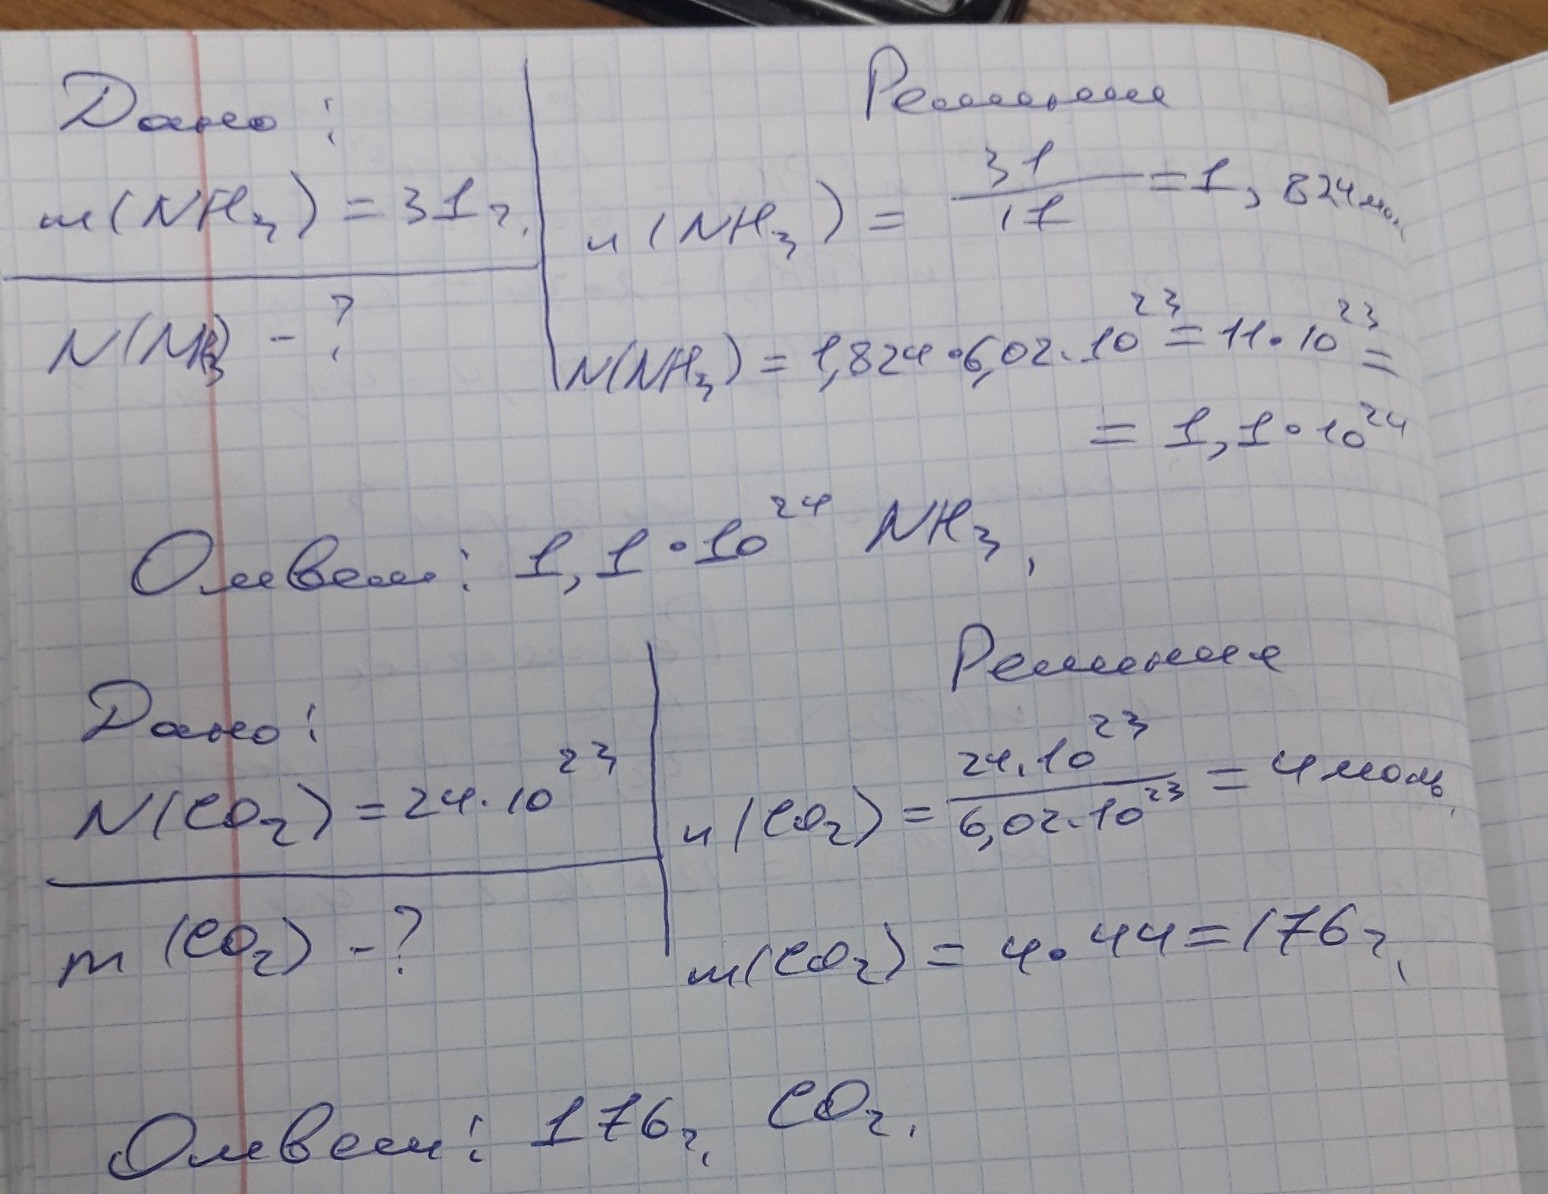 Дано:
m(NH₃) = 31 г.
N(NH₃) - ?
Решение
n(NH₃) = 31/17 = 1,824 мол
N(NH₃) = 1,824 · 6,02 · 10²³ = 11 · 10²³ =
= 1,1 · 10²⁴
Ответ: 1,1 · 10²⁴ NH₃.
Дано:
N(CO₂) = 24 · 10²³
m(CO₂) - ?
Решение
n(CO₂) = 24 · 10²³/6,02 · 10²³ = 4 моль.
m(CO₂) = 4 · 44 = 176 г.
Ответ: 176 г. CO₂.